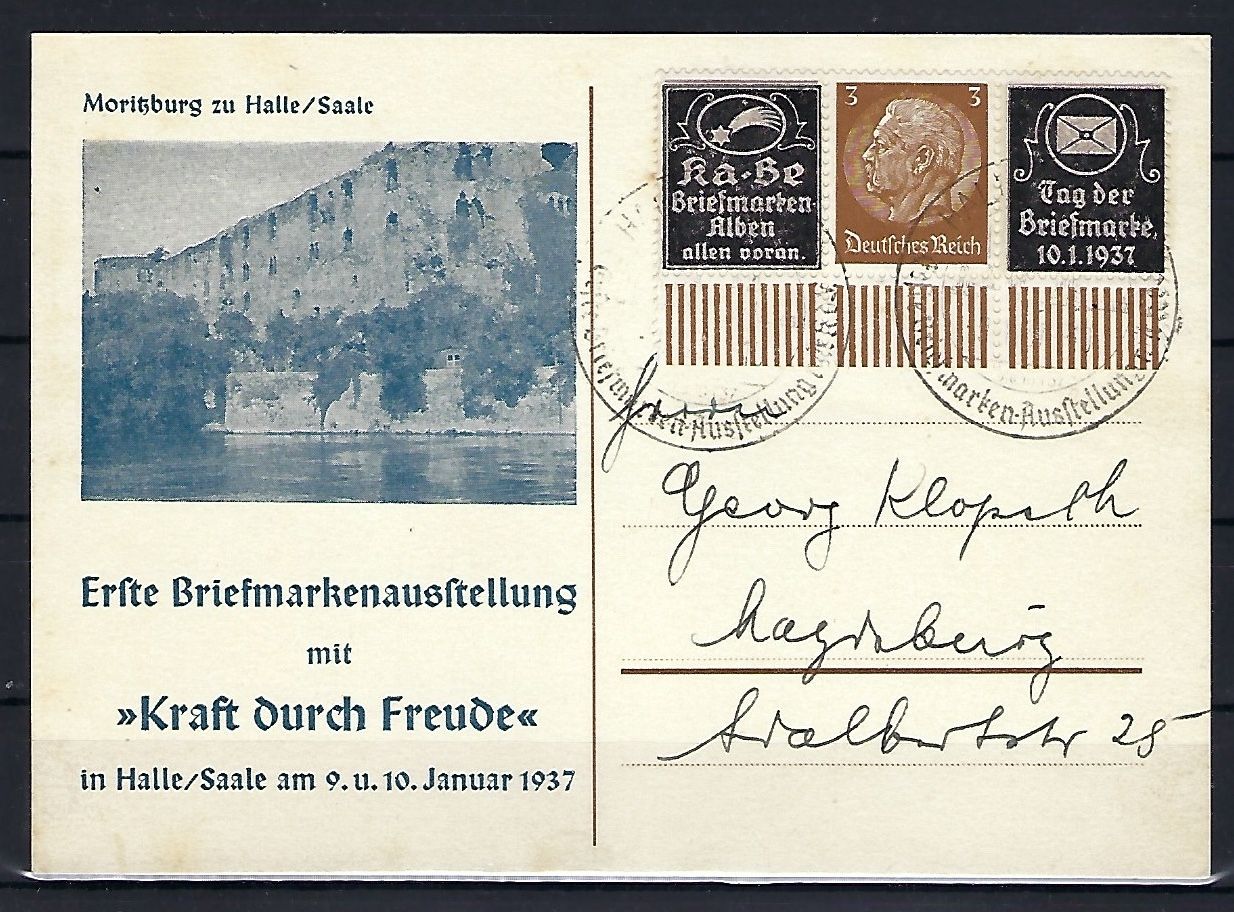 Moritzburg zu Halle/Saale
Erſte Briefmarkenausſtellung
mit
»Kraft durch Freude«
in Halle/Saale am 9. u. 10. Januar 1937
Ka-Be
Briefmarken-
Alben
allen voran.
3 3
Deutſches Reich
Tag der
Briefmarke.
10.1.1937
Briefmarken-Ausſtellung
marken-Ausſtellung
Herrn
Georg Klopsch
Magdeburg
Adalbertstr 25